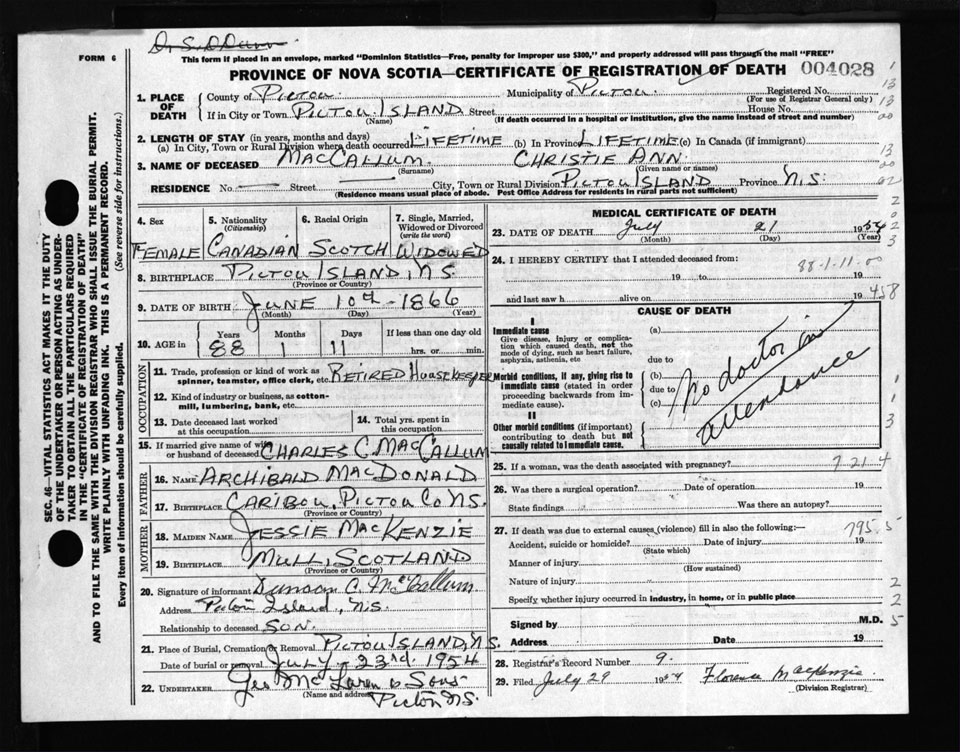 FORM 6
This form if placed in an envelope, marked "Dominion Statistics—Free, penalty for improper use $300," and properly addressed will pass through the mail "FREE"
PROVINCE OF NOVA SCOTIA—CERTIFICATE OF REGISTRATION OF DEATH 004028
1. PLACE OF DEATH County of Pictou. Municipality of Pictou. Registered No.
(For use of Registrar General only)
If in City or Town PICTOU ISLAND Street House No.
(Name) (If death occurred in a hospital or institution, give the name instead of street and number)
2. LENGTH OF STAY (in years, months and days)
(a) In City, Town or Rural Division where death occurred LIFETIME (b) In Province LIFETIME (c) In Canada (if immigrant)
3. NAME OF DECEASED MACCALLUM. CHRISTIE ANN.
(Surname) (Given name or names)
RESIDENCE No. — Street — City, Town or Rural Division PICTOU ISLAND Province N.S.
(Residence means usual place of abode. Post Office Address for residents in rural parts not sufficient)
SEC. 46—VITAL STATISTICS ACT MAKES IT THE DUTY
OF THE UNDERTAKER OR PERSON ACTING AS UNDER-
TAKER TO OBTAIN ALL THE PARTICULARS REQUIRED
IN THE "CERTIFICATE OF REGISTRATION OF DEATH"
AND TO FILE THE SAME WITH THE DIVISION REGISTRAR WHO SHALL ISSUE THE BURIAL PERMIT.
WRITE PLAINLY WITH UNFADING INK. THIS IS A PERMANENT RECORD.
Every item of information should be carefully supplied. (See reverse side for instructions.)
4. Sex 5. Nationality (Citizenship) 6. Racial Origin 7. Single, Married, Widowed or Divorced (write the word)
FEMALE CANADIAN SCOTCH WIDOWED
8. BIRTHPLACE PICTOU ISLAND, N.S.
(Province or Country)
9. DATE OF BIRTH JUNE 10TH - 1866
(Month) (Day) (Year)
10. AGE in Years Months Days If less than one day old
88 1 11 hrs. or min.
OCCUPATION
11. Trade, profession or kind of work as spinner, teamster, office clerk, etc. RETIRED HOUSEKEEPER
12. Kind of industry or business, as cotton-mill, lumbering, bank, etc.
13. Date deceased last worked at this occupation
14. Total yrs. spent in this occupation
15. If married give name of wife or husband of deceased CHARLES C. MACCALLUM
FATHER
16. NAME ARCHIBALD MACDONALD
17. BIRTHPLACE CARIBOU, PICTOU CO N.S.
(Province or Country)
MOTHER
18. MAIDEN NAME JESSIE MACKENZIE
19. BIRTHPLACE MULL, SCOTLAND
(Province or Country)
20. Signature of informant Duncan C. McCallum
Address Pictou Island, N.S.
Relationship to deceased SON.
21. Place of Burial, Cremation or Removal PICTOU ISLAND, N.S.
Date of burial or removal JULY - 23rd. 1954
22. UNDERTAKER Geo McLaren & Sons
(Name and address) PICTOU N.S.
MEDICAL CERTIFICATE OF DEATH
23. DATE OF DEATH July 21 1954
(Month) (Day) (Year)
24. I HEREBY CERTIFY that I attended deceased from:
88-1-11-00
19 to 19
and last saw h alive on 19
458
CAUSE OF DEATH
I
Immediate cause (a)
Give disease, injury or complication which caused death, not the mode of dying, such as heart failure, asphyxia, asthenia, etc
due to
Morbid conditions, if any, giving rise to immediate cause (stated in order proceeding backwards from immediate cause). (b)
due to
(c)
No doctor in
attendance
II
Other morbid conditions (if important) contributing to death but not causally related to immediate cause.
25. If a woman, was the death associated with pregnancy? 7-21-4
26. Was there a surgical operation? Date of operation 19
State findings Was there an autopsy?
27. If death was due to external causes (violence) fill in also the following:— 795.5
Accident, suicide or homicide? Date of injury 19
(State which)
Manner of injury
(How sustained)
Nature of injury
Specify whether injury occurred in industry, in home, or in public place
Signed by M.D.
Address Date 19
28. Registrar's Record Number 9.
29. Filed July 29 1954 Florence MacKenzie
(Division Registrar)